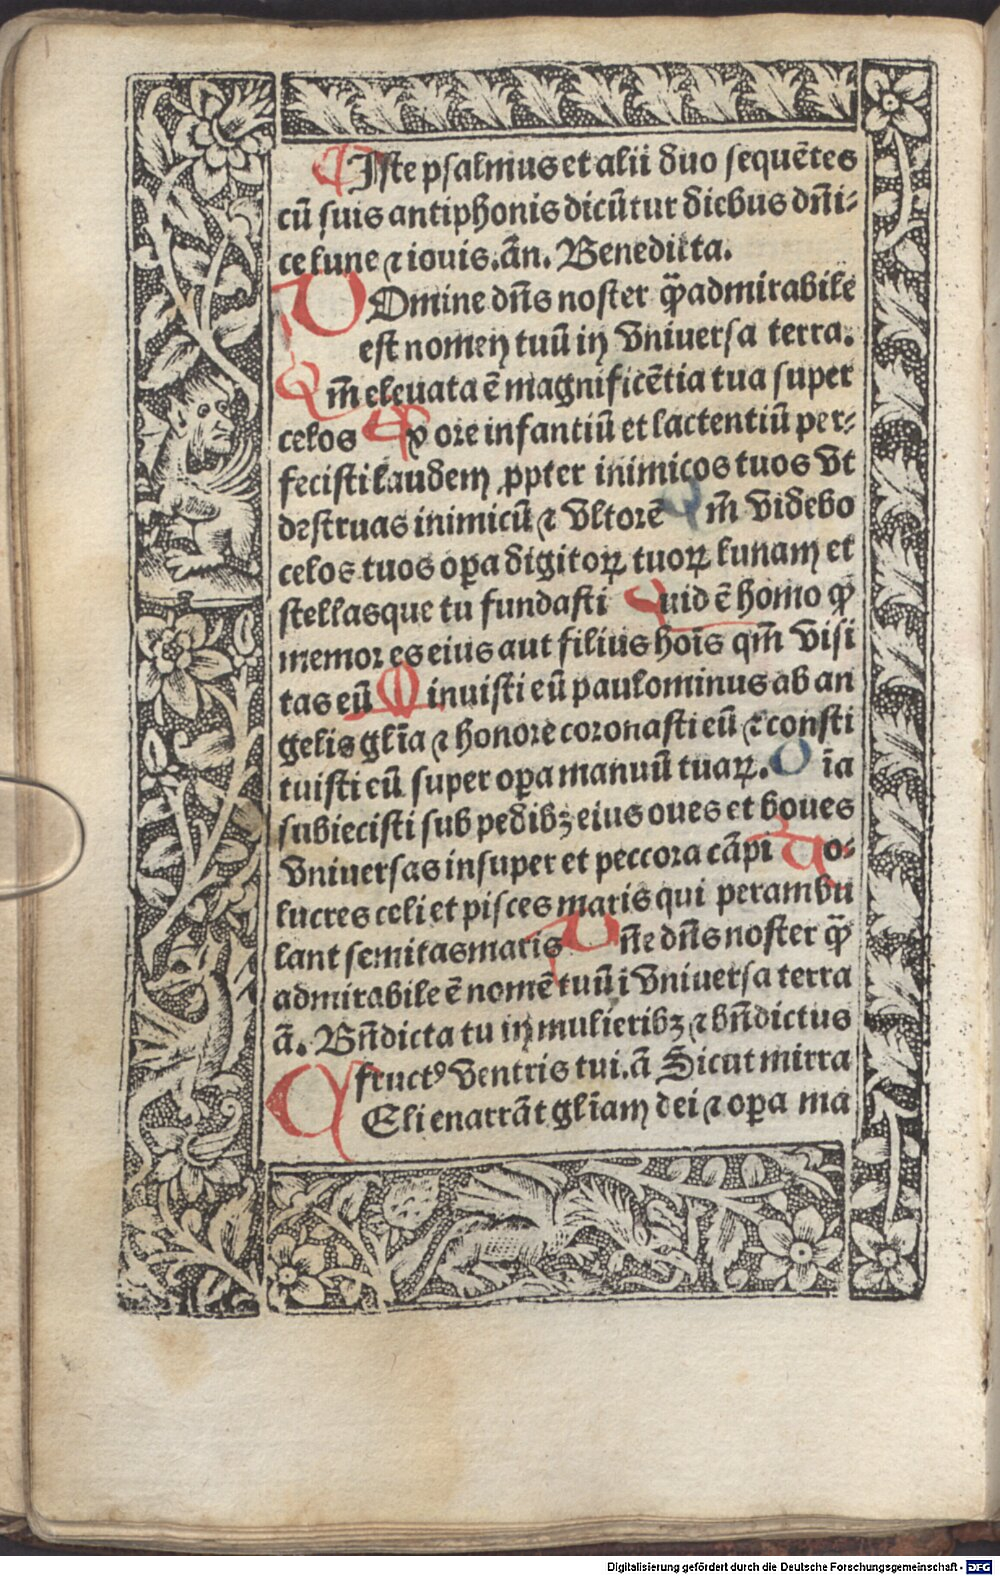 Iste psalmus et alii duo sequētes
cū suis antiphonis dicūtur diebus dn̄i-
ce lune ⁊ iouis. ān. Benedicta.
DOmine dn̄s noster q̄ꝫ admirabile
est nomen tuū in vniuersa terra.
Qm̄ eleuata ē magnificētia tua super
celos Ex ore infantiū et lactentiū per-
fecisti laudem ꝓpter inimicos tuos vt
destruas inimicū ⁊ vltorē Qm̄ videbo
celos tuos oꝑa digitoꝝ tuoꝝ lunam et
stellas que tu fundasti Quid ē homo ꝙ
memor es eius aut filius hoīs qm̄ visi
tas eū Minuisti eū paulominus ab an
gelis glīa ⁊ honore coronasti eū ⁊ consti
tuisti eū super oꝑa manuū tuaꝝ. Oīa
subiecisti sub pedibꝫ eius oues et boues
vniuersas insuper et peccora cāpi Uo-
lucres celi et pisces maris qui perambu
lant semitas maris Dn̄e dn̄s noster q̄ꝫ
admirabile ē nomē tuū ī vniuersa terra
ā. Bn̄dicta tu in mulieribꝫ ⁊ bn̄dictus
fructꝰ ventris tui. ā Sicut mirra
CEli enarrāt glīam dei ⁊ oꝑa ma
Digitalisierung gefördert durch die Deutsche Forschungsgemeinschaft - DFG